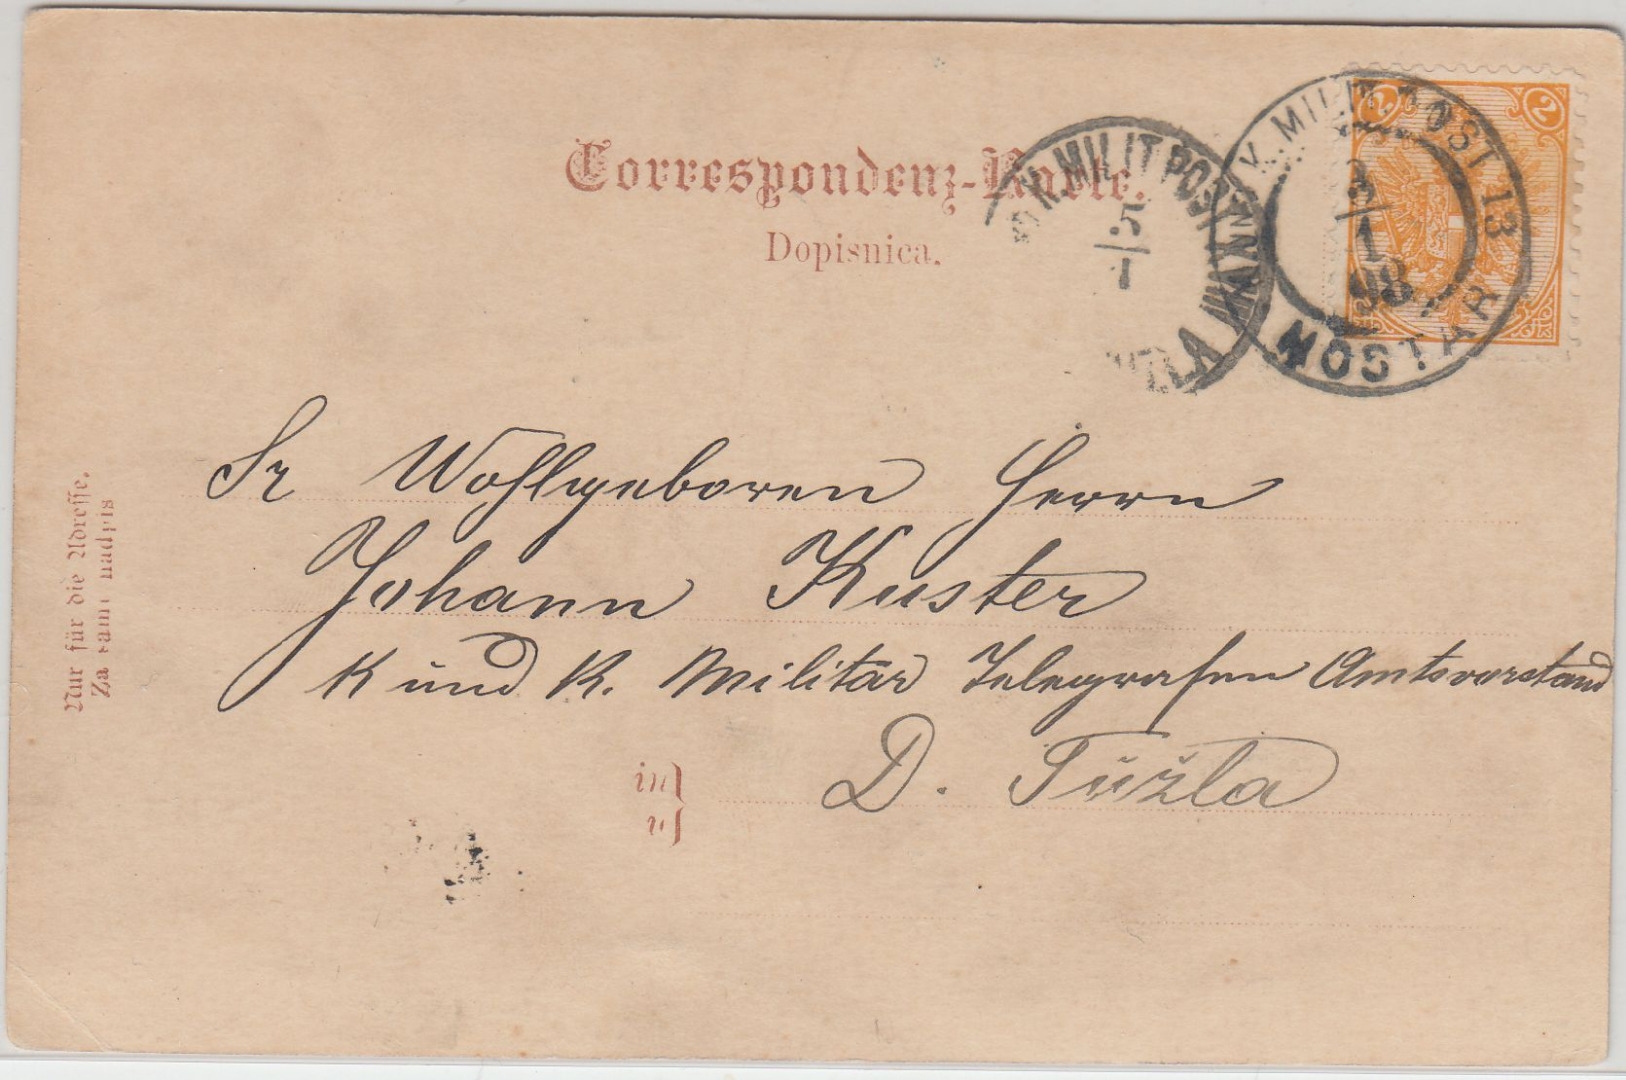 Correspondenz-Karte.
Dopisnica.
2 2
K. MILIT. POST 13
3/1
98
MOSTAR
K. MILIT POST
5/1
Sr Wohlgeboren Herrn
Johann Kuster
K und K. Militär Telegrafen Amtsvorstand
in
u
D. Tužla
Nur für die Adresse.
Za nadpis